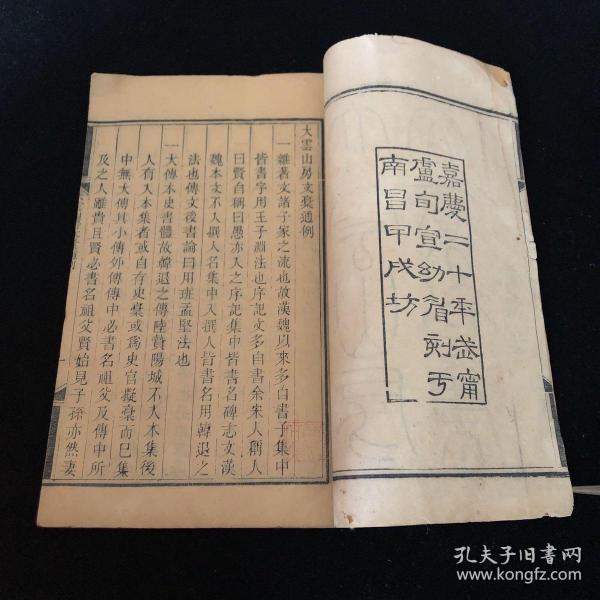 嘉慶二十年武甯
盧旬宣幼眉刻于
南昌甲戌坊
大雲山房文槀通例
一雜著文諸子家之流也故漢魏以來多自書子集中
皆書字用王子淵法也序記文多自書余朱人稱人
曰賢自稱曰愚亦入之序記集中皆書名碑志文漢
魏本文不入撰人名集中入撰人皆書名用韓退之
法也傳文後書論曰用班孟堅法也
一大傳本史書體故韓退之傳陸贄陽城不入本集後
人有入本集者或自存史槀或爲史官擬槀而已集
中無大傳其小傳外傳傳中必書名祖父及傳中所
及之人雖貴且賢必書名祖父賢始見子孫亦然妻
孔夫子旧书网
www.kongfz.com